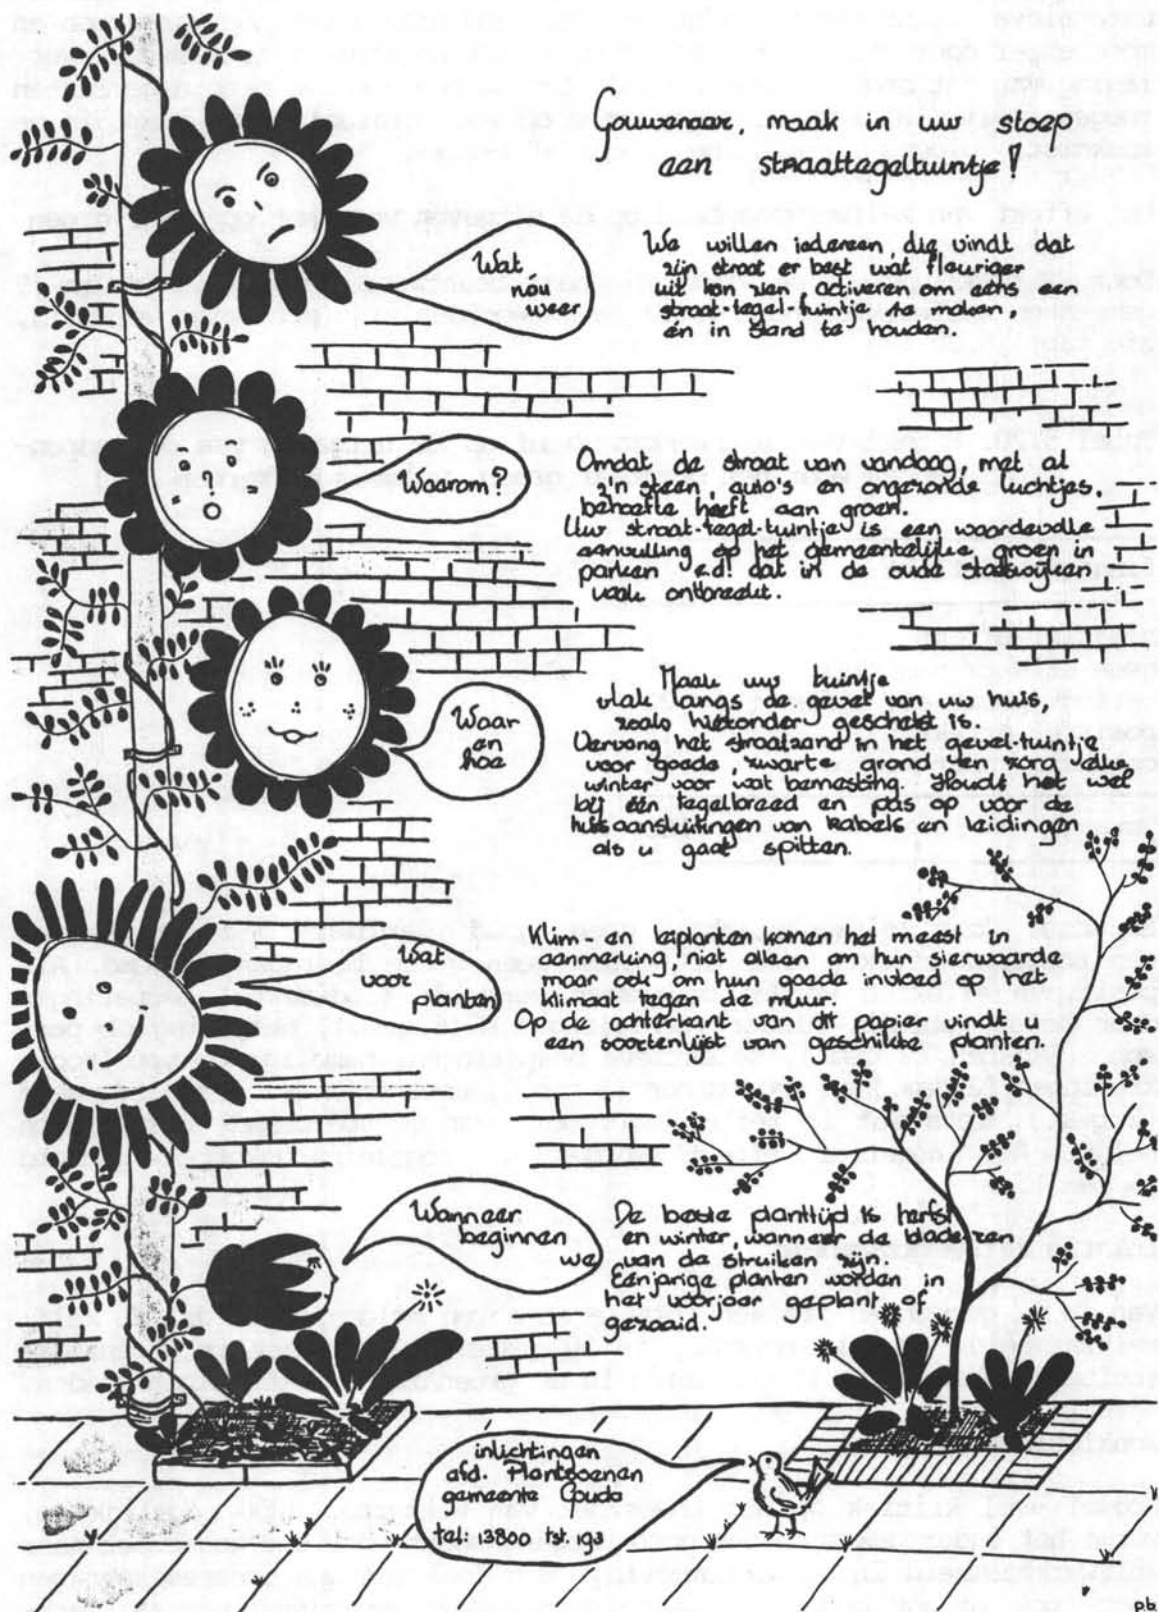 Gouwenaar, maak in uw stoep
een straattegeltuintje!
We willen iedereen, die vindt dat
zijn straat er best wat fleuriger
uit kan zien activeren om eens een
straat-tegel-tuintje te maken,
én in stand te houden.
Wat
nóu
weer
Waarom?
Omdat de straat van vandaag, met al
z'n steen, auto's en ongezonde luchtjes,
behoefte heeft aan groen.
Uw straat-tegel-tuintje is een waardevolle
aanvulling op het gemeentelijke groen in
parken e.d. dat in de oude stadswijken
vaak ontbreekt.
Waar
en
hoe
Maak uw tuintje
vlak langs de gevel van uw huis,
zoals hieronder geschetst is.
Vervang het straatzand in het gevel-tuintje
voor goede, zwarte grond en zorg elke
winter voor wat bemesting. Houdt het wel
bij één tegelbreed en pas op voor de
huisaansluitingen van kabels en leidingen
als u gaat spitten.
Wat
voor
planten
Klim- en leiplanten komen het meest in
aanmerking, niet alleen om hun sierwaarde
maar ook om hun goede invloed op het
klimaat tegen de muur.
Op de achterkant van dit papier vindt u
een soortenlijst van geschikte planten.
Wanneer
beginnen
we
De beste planttijd is herfst
en winter, wanneer de bladeren
van de struiken zijn.
Eénjarige planten worden in
het voorjaar geplant of
gezaaid.
inlichtingen
afd. Plantsoenen
gemeente Gouda
tel: 13800 tst. 193
p.b